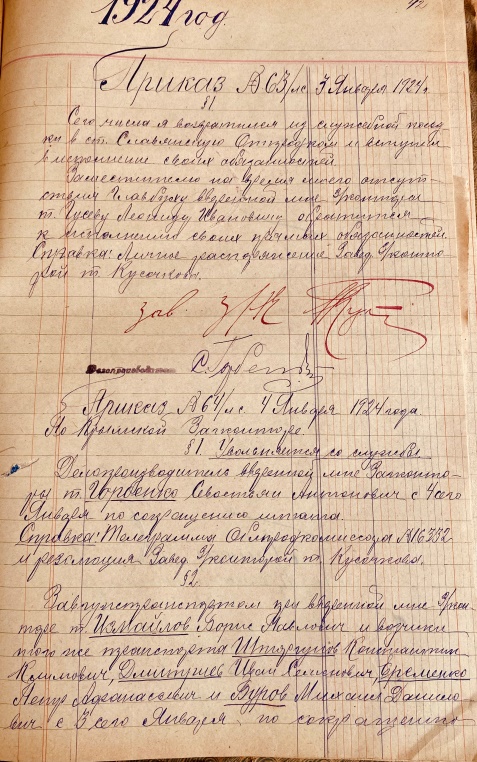 1924 год.
Приказ №63/лс 3 Января 1924г.
§1
Сего числа я возвратился из служебной поезд
ки в ст. Славянскую Отпродком и вступил
в исполнение своих обязанностей
Заместителю на время моего отсут
ствия Главбуху вверенной мне З/конторы
т. Гусеву Леониду Ивановичу обратиться
к исполнению своих прямых обязанностей.
Справка: Личное распоряжение Завед. З/конто
рой т. Кусочкова.
Зав. З/К
Делопроизводитель
Приказ №64/лс 4 Января 1924 года.
По Крымской Загконторе.
§1. Увольняется со службы
Делопроизводитель вверенной мне Загконто-
ры т. Горбенко Антонович с 4 сего
Января по сокращению штата.
Справка: Телеграмма Облпродкомиссара №16352
и резолюция Завед. З/конторой т. Кусочкова.
§2.
Завгужтранспортом при вверенной мне З/кон
торе т. Измайлов Борис Павлович и возчики
того же транспорта Константин
Климович, Дмитриев Иван Семенович, Еременко
Петр Афанасьевич и Буров Михаил Данило
вич с 3 сего Января по сокращению